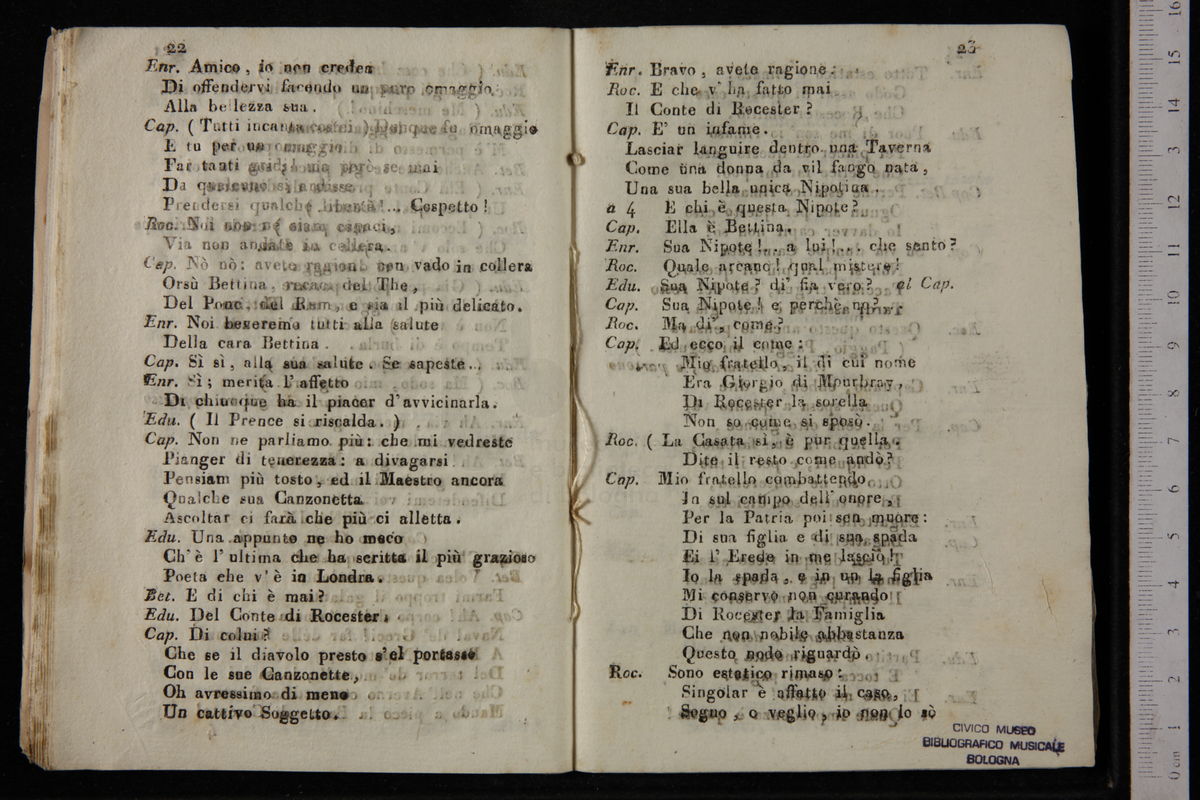 22
Enr. Amico, io non credea
Di offendervi facendo un puro omaggio,
Alla bellezza sua.
Cap. ( Tutti incanta costei ) Dunque fu omaggio
E tu per un omaggio
Far tanti gridi; ma però se mai
Da qualcuno si andasse
Prendersi qualche libertà!... Cospetto!
Roc. Noi non ne siam capaci,
Via non andate in collera.
Cap. Nò nò: avete ragione non vado in collera
Orsù Bettina, recaci del The,
Del Ponc, del Rum, e sia il più delicato.
Enr. Noi beveremo tutti alla salute
Della cara Bettina.
Cap. Sì sì, alla sua salute. Se sapeste..
Enr. Sì; merita l'affetto
Di chiunque ha il piacer d'avvicinarla.
Edu. ( Il Prence si riscalda. )
Cap. Non ne parliamo più: che mi vedreste
Pianger di tenerezza: a divagarsi
Pensiam più tosto, ed il Maestro ancora
Qualche sua Canzonetta
Ascoltar ci farà che più ci alletta.
Edu. Una appunto ne ho meco
Ch'è l'ultima che ha scritta il più grazioso
Poeta che v'è in Londra.
Bet. E di chi è mai?
Edu. Del Conte di Rocester.
Cap. Di colui?
Che se il diavolo presto s'el portasse
Con le sue Canzonette,
Oh avressimo di meno
Un cattivo Soggetto.
23
Enr. Bravo, avete ragione:
Roc. E che v'ha fatto mai
Il Conte di Rocester?
Cap. E' un infame.
Lasciar languire dentro una Taverna
Come una donna da vil fango nata,
Una sua bella unica Nipotina.
a 4 E chi è questa Nipote?
Cap. Ella è Bettina.
Enr. Sua Nipote!.. a lui!... che sento?
Roc. Quale arcano! qual mistero!
Edu. Sua Nipote? di' fia vero? al Cap.
Cap. Sua Nipote! e perchè no?...
Roc. Ma di', come?
Cap. Ed ecco il come:
Mio fratello, il di cui nome
Era Giorgio di Mourbray,
Di Rocester la sorella
Non so come si sposò.
Roc. ( La Casata sì, è pur quella.
Dite il resto come andò?
Cap. Mio fratello combattendo
In sul campo dell'onore,
Per la Patria poi sen muore:
Di sua figlia e di sua spada
Ei l'Erede in me lasciò!
Io la spada, e in un la figlia
Mi conservo non curando
Di Rocester la Famiglia
Che non nobile abbastanza
Questo nodo riguardò.
Roc. Sono estatico rimaso:
Singolar è affatto il caso,
Sogno, o veglio, io non lo sò
CIVICO MUSEO
BIBLIOGRAFICO MUSICALE
BOLOGNA
0 cm 1 2 3 4 5 6 7 8 9 10 11 12 13 14 15 16